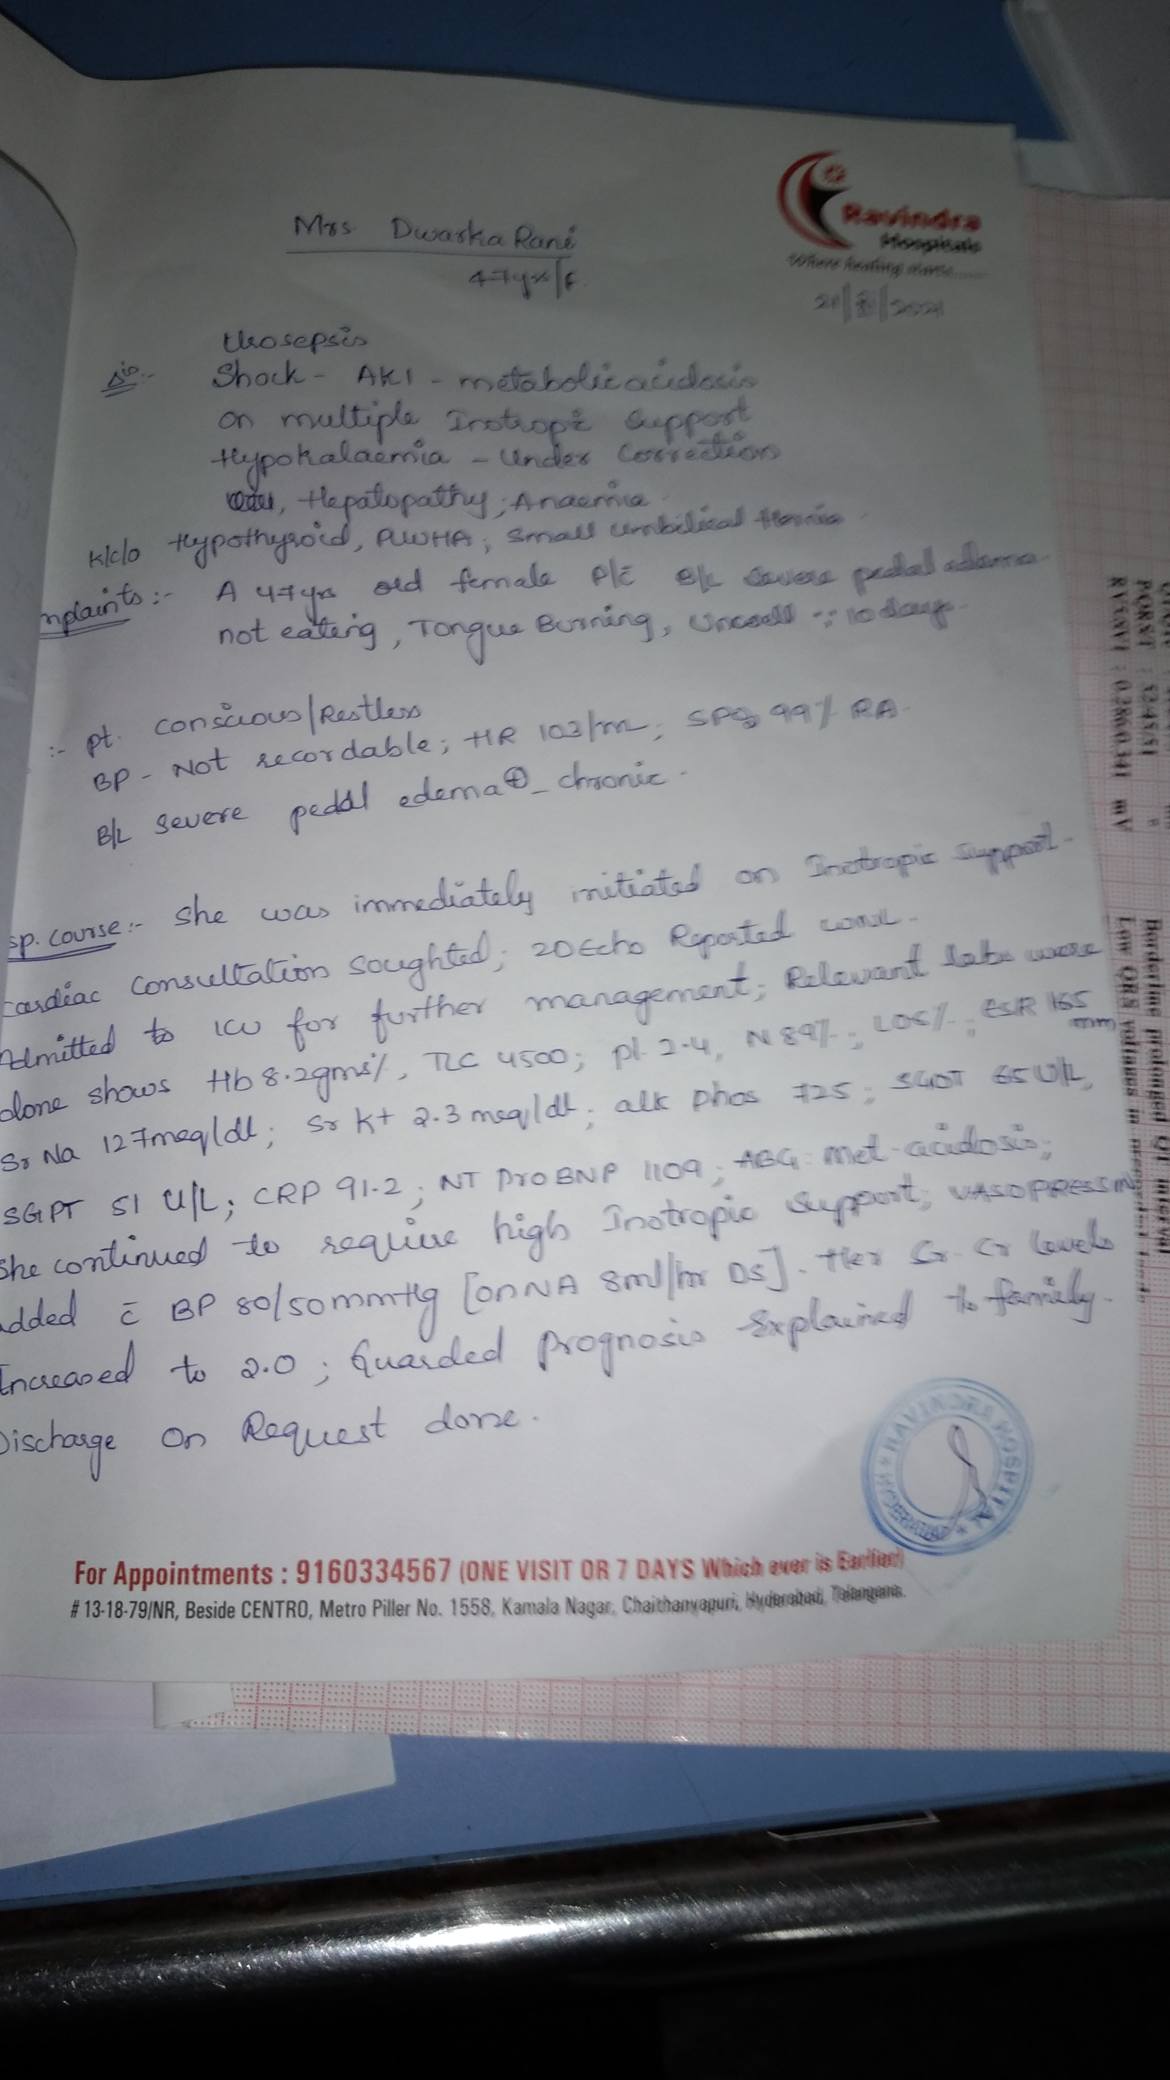 Ravindra
Hospitals
Where healing starts......
Mrs Dwarka Rani
47yrs/F.
20/ /2021
Urosepsis
Δis:- Shock - AKI - metabolic acidosis
on multiple Inotropic Support
Hypokalaemia - Under Correction
, Hepatopathy; Anaemia
K/c/o Hypothyroid, PLWHA; Small Umbilical Hernia
mplaints:- A 47yrs old female P/c̄ B/L Severe pedal edema
not eating, Tongue Burning, Unwell ∵ 10 days.
:- pt. conscious/Restless
BP - Not recordable; HR 103/m; SPO2 99% RA.
B/L Severe pedal edema ⊕ - chronic.
sp. course:- She was immediately initiated on Inotropic Support.
Cardiac Consultation Soughted; 2D Echo Reported
Admitted to ICU for further management; Relevant labs were
done shows Hb 8.2gms%, TLC 4500; pl 2.4, N 89%; L 05%; ESR 165
mm
Sr Na 127meq/dl; Sr K+ 2.3 meq/dl; alk phos 725; SGOT 65 U/L,
SGPT 51 U/L; CRP 91.2; NT ProBNP 1109; ABG: met-acidosis;
She continued to require high Inotropic Support; VASOPRESSIN
added c̄ BP 80/50mmHg [on NA 8ml/hr DS]. Her Sr. Cr levels
Increased to 2.0; Guarded Prognosis Explained to family.
Discharge On Request done.
RAVINDRA HOSPITAL
HYDERABAD
For Appointments : 9160334567 (ONE VISIT OR 7 DAYS Which ever is Earlier)
# 13-18-79/NR, Beside CENTRO, Metro Piller No. 1558, Kamala Nagar, Chaithanyapuri, Hyderabad, Telangana.
Borderline prolonged QT interval
Low QRS voltages in